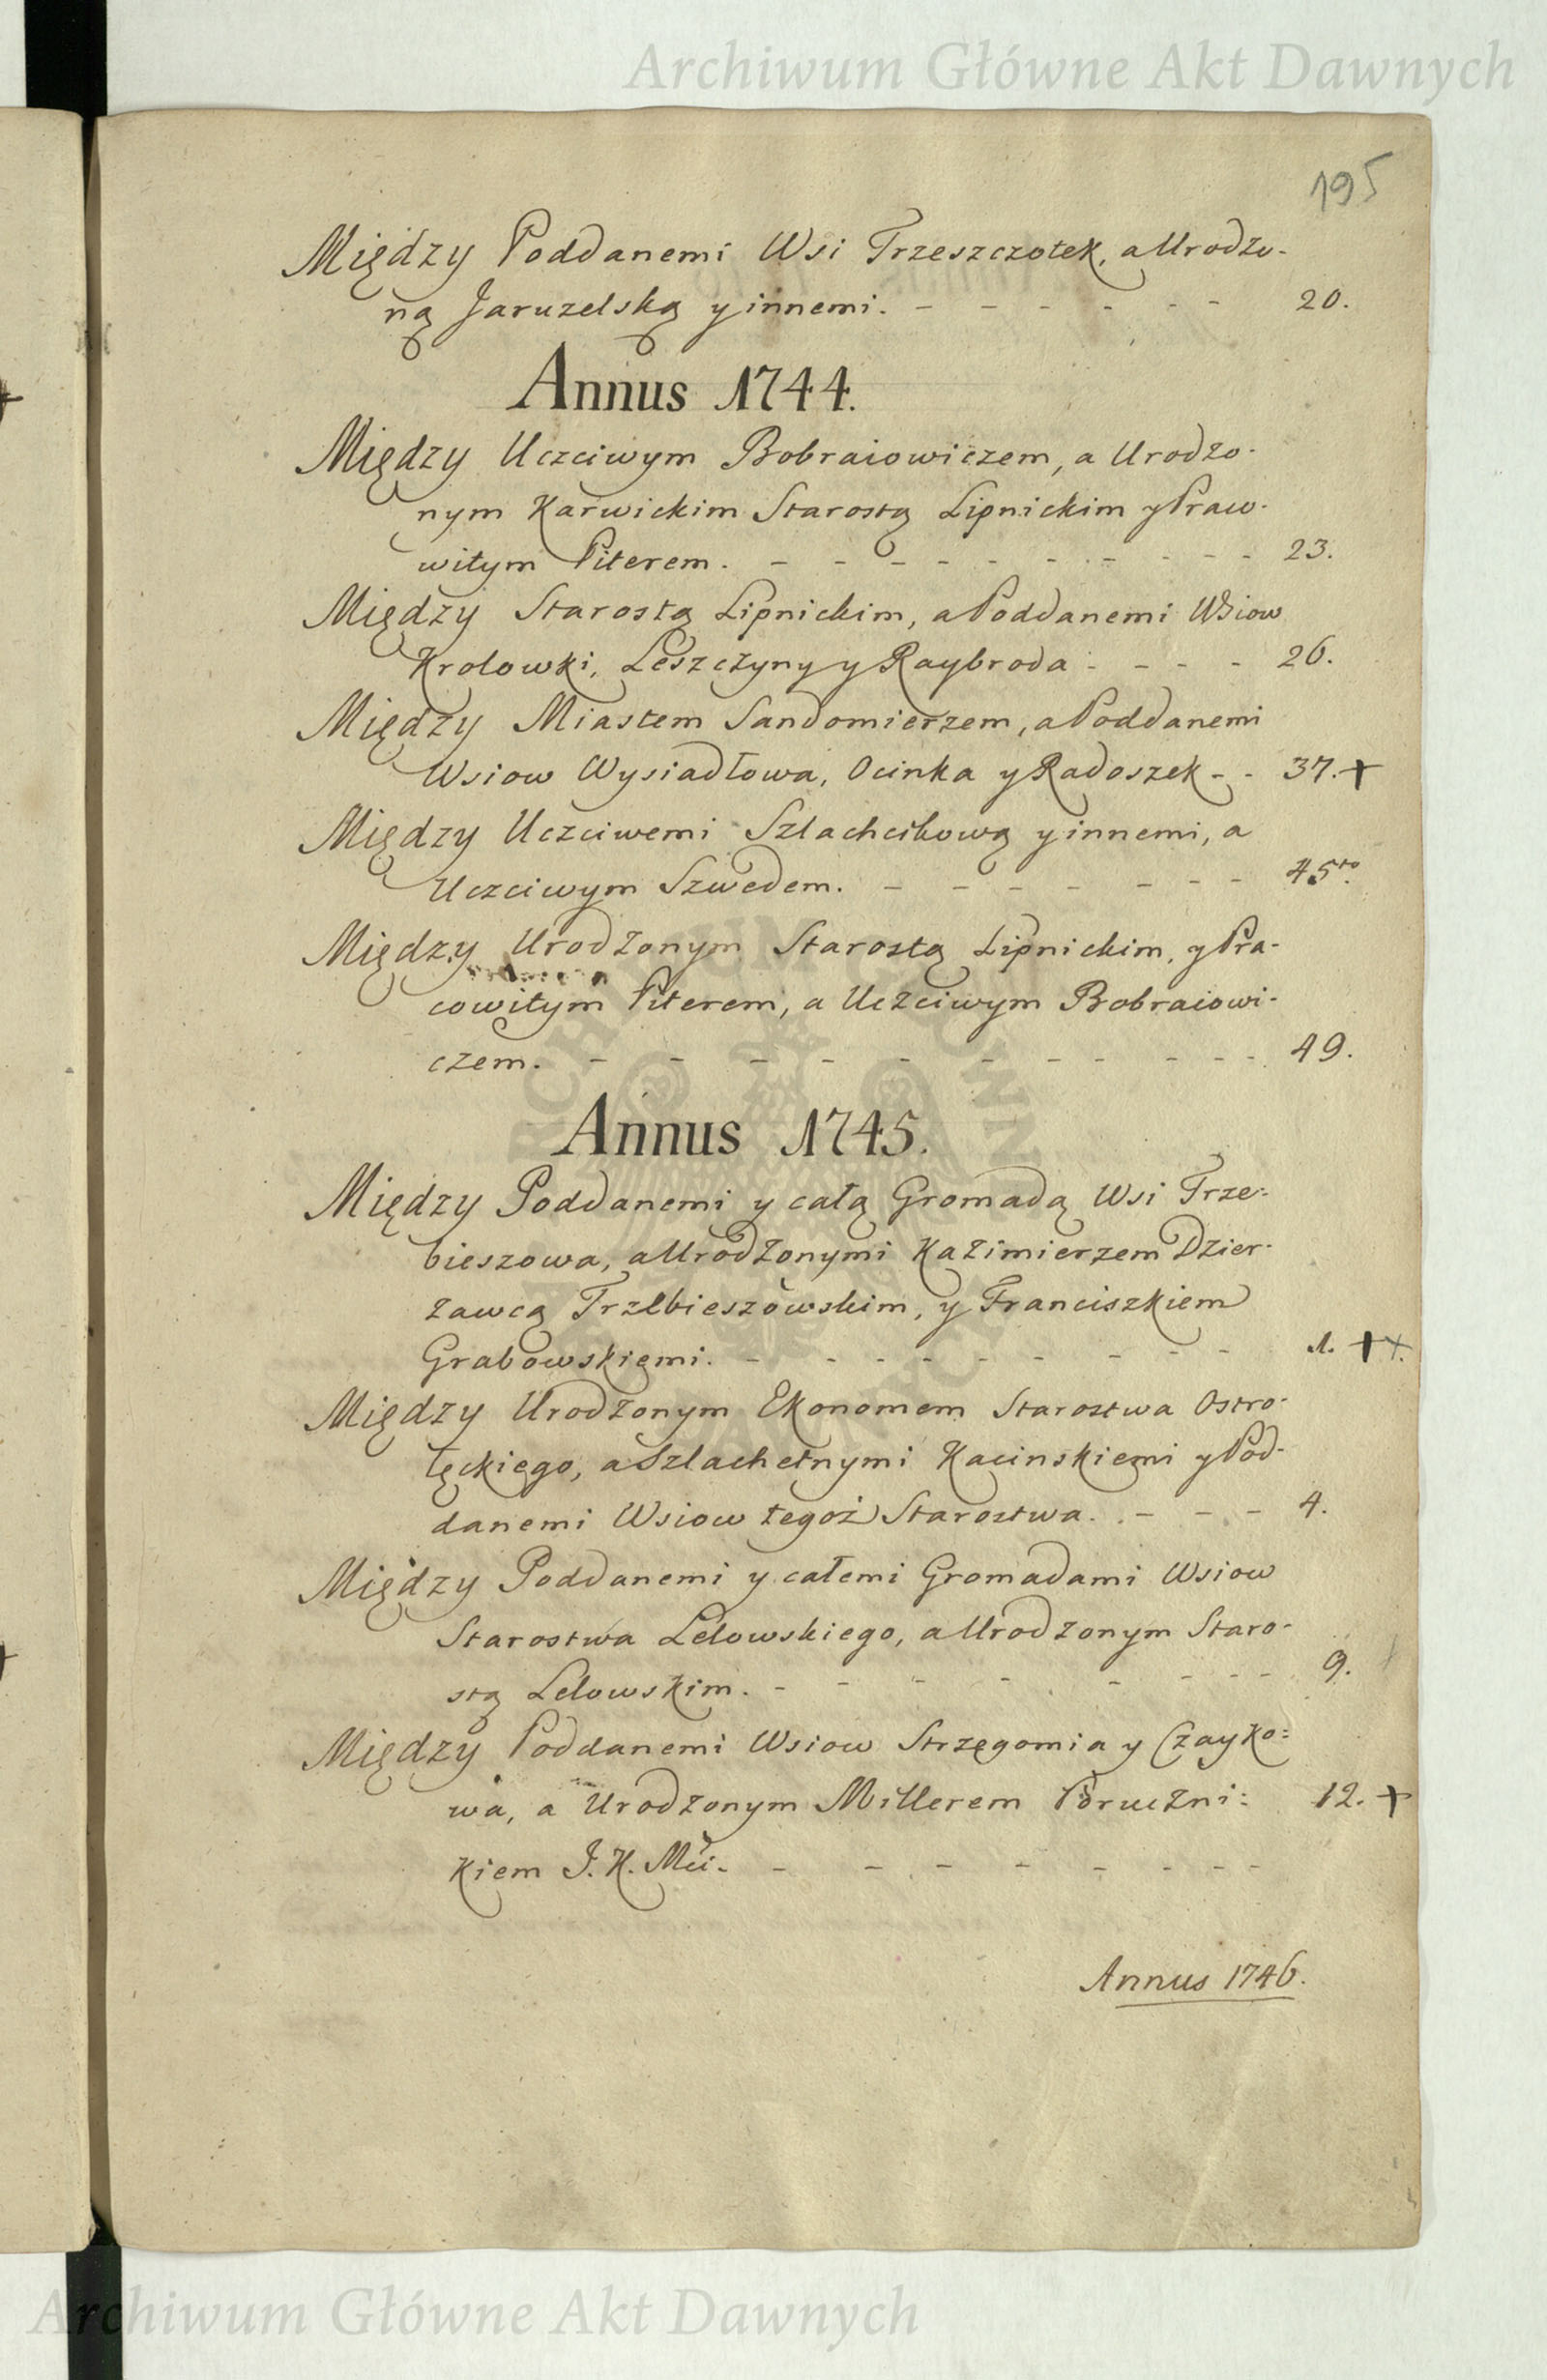 Archiwum Główne Akt Dawnych
195
Między Poddanemi Wsi Trzeszczotek, a Urodzo-
ną Jaruzelską y innemi. - - - - - - 20.
Annus 1744.
Między Uczciwym Bobraiowiczem, a Urodzo-
nym Karwickim Starostą Lipnickim y Praw-
witym Piterem. - - - - - - - - - 23.
Między Starostą Lipnickim, a Poddanemi Wsiow
Krolowki, Leszczyny y Raybroda - - - - 26.
Między Miastem Sandomierzem, a Poddanemi
Wsiow Wysiadłowa, Ocinka y Radoszek - - 37. +
Między Uczciwemi Szlachcikową y innemi, a
Uczciwym Szwedem. - - - - - - - 45to.
Między Urodzonym Starostą Lipnickim, y Pra-
cowitym Piterem, a Uczciwym Bobraiowi-
czem. - - - - - - - - - - - 49.
Annus 1745.
Między Poddanemi y całą Gromadą Wsi Trze-
bieszowa, a Urodzonymi Kazimierzem Dzier-
zawcą Trzebieszowskim, y Franciszkiem
Grabowskiemi. - - - - - - - - - 1. + +.
Między Urodzonym Ekonomem Starostwa Ostro-
łęckiego, a Szlachetnymi Kacinskiemi y Pod-
danemi Wsiow tegoż Starostwa. - - - 4.
Między Poddanemi y całemi Gromadami Wsiow
Starostwa Lelowskiego, a Urodzonym Staro-
stą Lelowskim. - - - - - - - - 9.
Między Poddanemi Wsiow Strzegomia y Czayko=
wa, a Urodzonym Millerem Poruczni= 12. +
kiem J. K. Mci. - - - - - - - -
Annus 1746.
Archiwum Główne Akt Dawnych